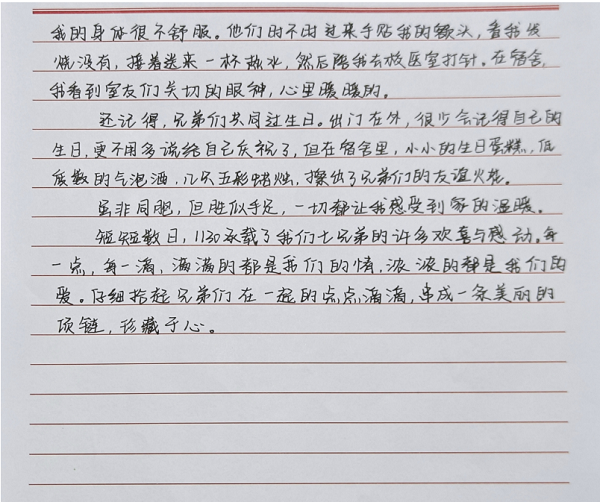 我的身体很不舒服。他们时不时过来手贴我的额头，看我发
烧没有，接着送来一杯热水，然后陪我去校医室打针。在宿舍，
我看到室友们关切的眼神，心里暖暖的。
还记得，兄弟们共同过生日。出门在外，很少会记得自己的
生日，更不用多说给自己庆祝了，但在宿舍里，小小的生日蛋糕，低
度数的气泡酒，几只五彩蜡烛，擦出了兄弟们的友谊火花。
虽非同胞，但胜似手足，一切都让我感受到家的温暖。
短短数日，1130承载了我们七兄弟的许多欢喜与感动。每
一点，每一滴，满满的都是我们的情，浓浓的都是我们的
爱。仔细拾起兄弟们在一起的点点滴滴，串成一条美丽的
项链，珍藏于心。